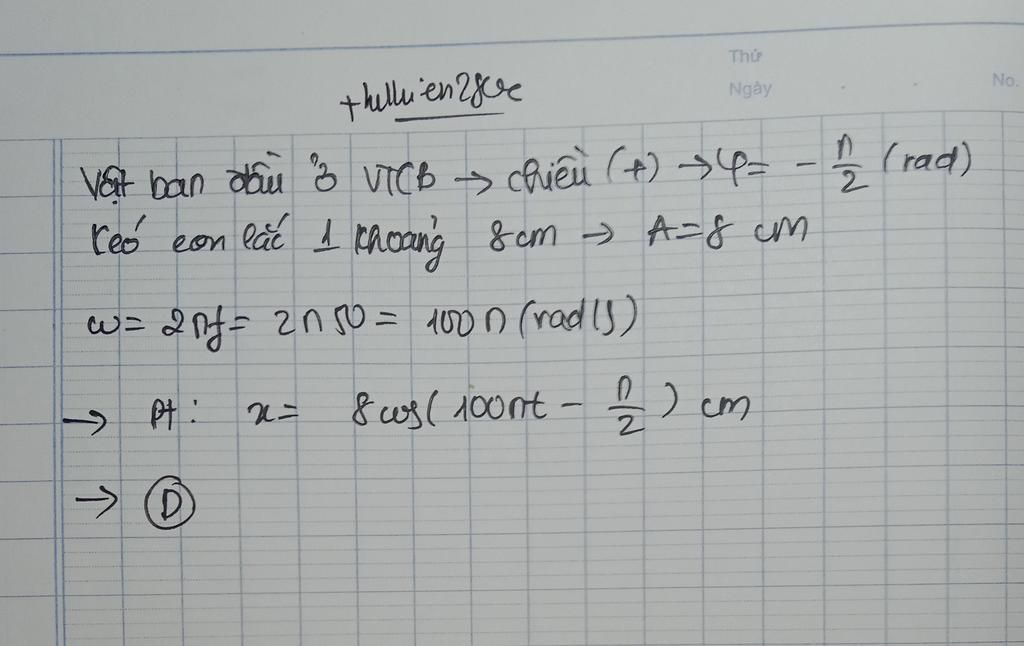 Thứ
Ngày
No.
Vật ban đầu ở VTCB → chiều (+) → φ = - π/2 (rad)
Kéo con lắc 1 khoảng 8cm → A = 8 cm
ω = 2πf = 2π50 = 100π (rad/s)
→ Pt: x = 8cos(100πt - π/2) cm
→ D